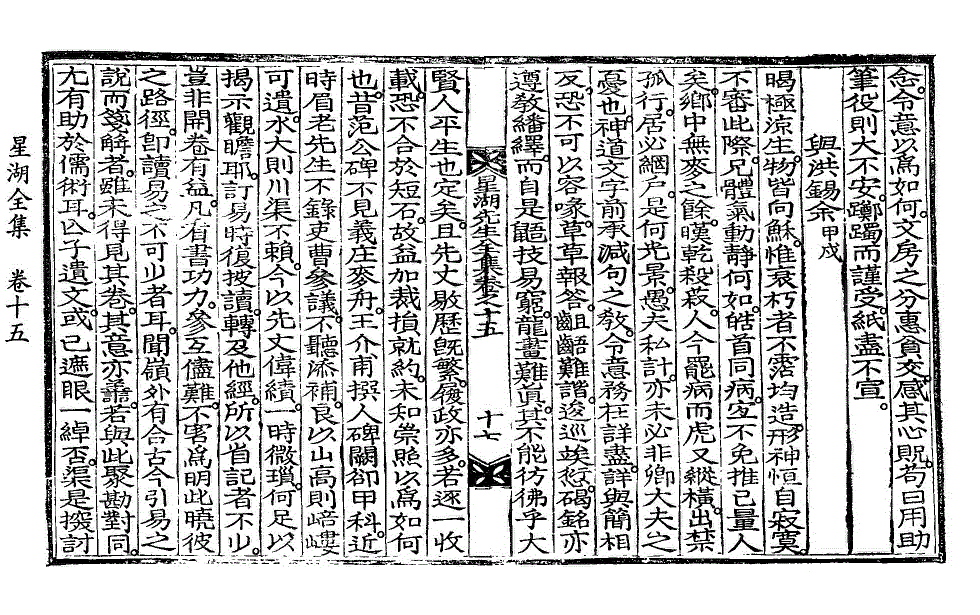 念。令意以爲如何。文房之分惠貧交。感其心貺。苟曰用助
筆役則大不安。躑躅而謹受。紙盡不宣。
與洪錫余 甲戌
暍極涼生。物皆向穌。惟衰朽者不霑均造。形神恒自寂寞。
不審此際。兄體氣動靜何如。皓首同病。宜不免推己量人
矣。鄕中無麥之餘。暵乾殺殺人。今罷病而虎又縱橫。出禁
孤行。居必綢戶。是何光景。愚夫私計亦未必非卿大夫之
憂也。神道文字前承減句之敎。令意務在詳盡。詳與簡相
反。恐不可以容喙。草草報答。齟齬難諧。逡巡竢愆。碣銘亦
遵敎繙繹。而自是鼯技易窮。龍畫難眞。其不能彷彿乎大
星湖先生全集卷之十五
十七
賢人平生也定矣。且先丈敭歷旣繁。履政亦多。若逐一收
載。恐不合於短石。故益加裁損就約。未知崇照以爲如何
也。昔范公碑不見義庄麥舟。王介甫撰人碑。闕卻甲科。近
時眉老先生不錄吏曹參議。不聽添補。良以山高則嵁嶁
可遺。水大則川渠不賴。今以先丈偉績。一時微瑣。何足以
揭示觀瞻耶。訂易時復披讀。轉及他經。所以省記者不少。
豈非開卷有益。凡有書功力。參互儘難。不害爲明此曉彼
之路徑。卽讀易之不可少者耳。聞嶺外有合古今引易之
說而箋解者。雖未得見其卷。其意亦善。若與此聚勘對同。
尤有助於儒術耳。仌子遺文。或已遮眼一綽否。渠是撥討
星湖全集 卷十五